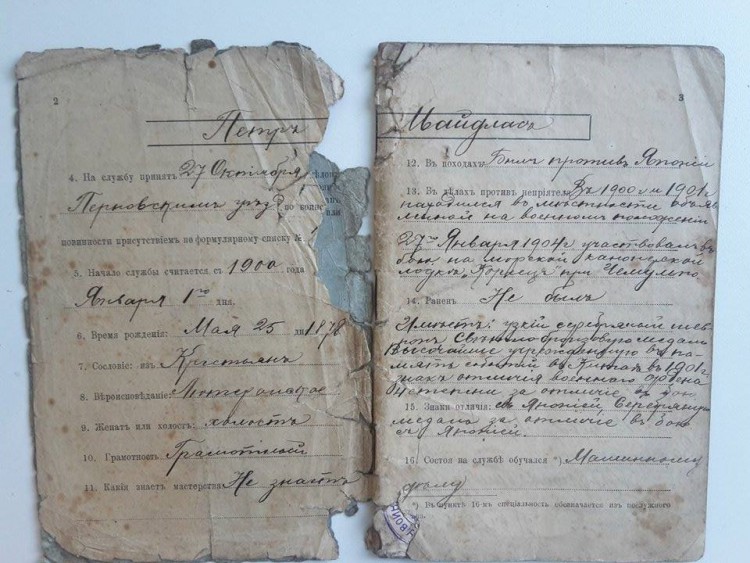 2
Петръ
4. На службу принятъ 27 Октября
Перновскимъ уѣзд по воинс
повинности присутствіемъ по формулярному списку №
5. Начало службы считается съ 1900 года
Января 1го дня.
6. Время рожденія: Мая 25 дн 1878
7. Сословіе: изъ Крестьянъ
8. Вѣроисповѣданіе: Лютеранское
9. Женатъ или холостъ: холостъ
10. Грамотность: Грамотный
11. Какія знаетъ мастерства: Не знаетъ
3
Майдласъ
12. Въ походахъ: Былъ противъ Японіи
13. Въ дѣлахъ противъ непріятеля: Въ 1900 и 1901 г
находился въ мѣстности объяв
леной на военномъ положеніи
27го Января 1904 г. участвовалъ въ
бою на морской канонерской
лодкѣ „Кореецъ" при Чемульпо
14. Раненъ Не былъ
Имѣетъ: узкій серебряный шев
ронъ Свѣтло бронзовую медаль
Высочайше учрежденную въ па-
мять событій въ Китаѣ въ 1901 г.
знакъ отличія военнаго ордена
4 степени за отличіе въ бою
15. Знаки отличія: съ Японіей Серебряную
медаль за отличіе въ бою
съ Японіей.
16. Состоя на службѣ обучался *) Машинному
дѣлу
*) Въ пунктѣ 16-мъ спеціальность обозначается изъ послужного